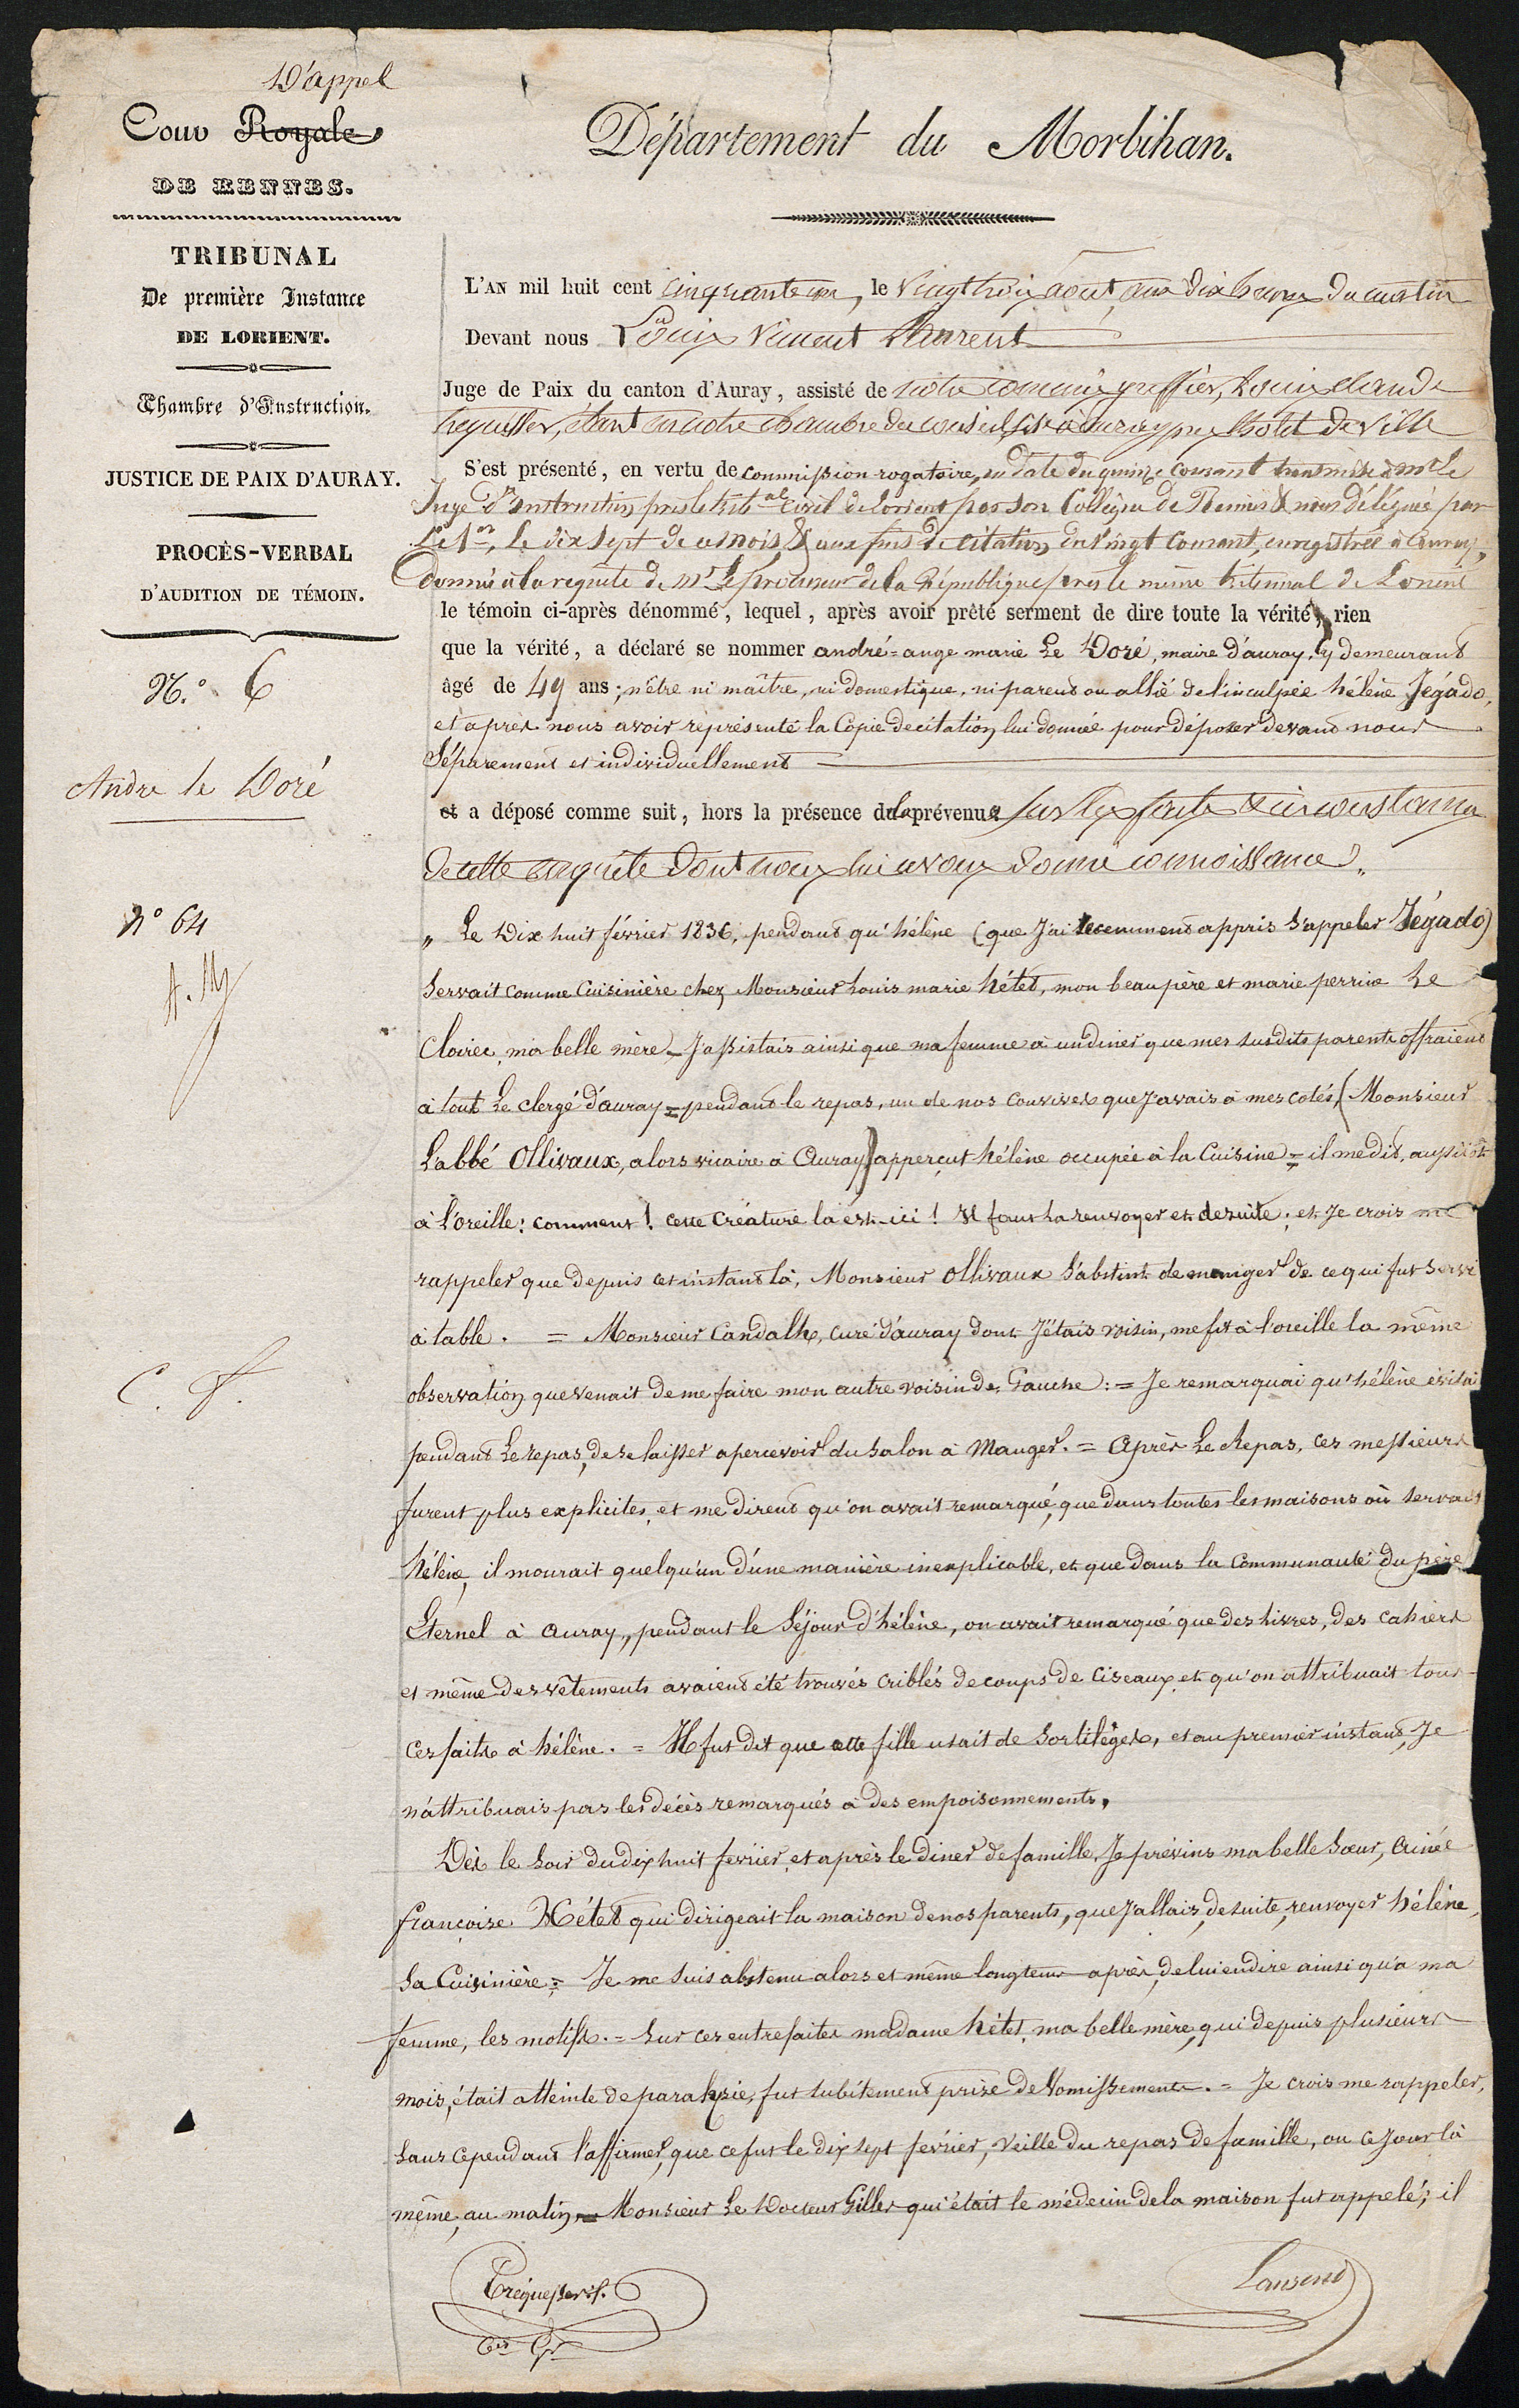 D'appel
Cour Royale
DE RENNES.
TRIBUNAL
De première Instance
DE LORIENT.
Chambre d'Instruction.
JUSTICE DE PAIX D'AURAY.
PROCÈS-VERBAL
D'AUDITION DE TÉMOIN.
N.° 6
Andre le Doré
n° 64
Département du Morbihan.
L'AN mil huit cent cinquante un, le vingt trois août, aux dix heures du matin
Devant nous Louis Vincent Laurent
Juge de Paix du canton d'Auray, assisté de notre commis greffier, Louis Claude
Trequesser, étant en notre chambre du conseil, sise à auray près l'hotel de ville
S'est présenté, en vertu de commission rogatoire, en date du quinze courant transmise à mr Le
Juge d'Instruction près le trib.al civil de Lorient par son Collègue de Rennes & nous déléguée par
Le 1er, Le dix sept de ce mois, & aux fins de citation du vingt courant, enregistrée à auray,
Donnée à la requête de Mr Le procureur de la République près le même tribunal de Lorient
le témoin ci-après dénommé, lequel, après avoir prêté serment de dire toute la vérité, rien
que la vérité, a déclaré se nommer andré=ange marie Le Doré, maire d'auray, y demeurant
âgé de 49 ans; n'être ni maître, ni domestique, ni parent ou allié de l'inculpée hélène Jégado,
et après nous avoir représenté la Copie de citation lui donnée pour déposer devant nous
Séparement et individuellement
et a déposé comme suit, hors la présence de la prévenue sur les faits & circonstances
de cette enquête dont nous lui avons donné connoissance.
" Le Dix huit février 1836, pendant qu'hélène (que J'ai recemment appris s'appeler Jégado)
Servait comme Cuisinière chez Monsieur Louis marie hétet, mon beau père et marie perrine Le
Cloirec, ma belle mère _ J'assistais ainsi que ma femme à un diner que mes susdits parents offraient
à tout Le clergé d'auray = pendant le repas, un de nos convives que J'avais à mes cotés, (Monsieur
L'abbé Ollivaux, alors vicaire à Auray) apperçut hélène occupée à la Cuisine = il me dit, aussitot
à l'oreille: comment! cette créature là est-ici! Il faut la renvoyer et desuite; et Je crois me
rappeler que depuis cet instant là, Monsieur Ollivaux s'abstint de manger de ce qui fut servi
à table. = Monsieur Candalh, curé d'auray dont J'étais voisin, me fit à l'oreille la même
observation que venait de me faire mon autre voisin de Gauche: = Je remarquai qu'hélène évitai
pendant Le repas, de se laisser apercevoir du Salon à Manger. = Après Le Repas, ces messieurs
furent plus explicites, et me dirent qu'on avait remarqué, que dans toutes les maisons où servait
hélène, il mourait quelqu'un d'une manière inexplicable, et que dans la Communauté du père
Eternel à Auray, pendant le Séjour d'hélène, on avait remarqué que des livres, des cahiers
et même des vêtements avaient été trouvés criblés de coups de Ciseaux, et qu'on attribuait tous
ces faits à hélène. = Il fut dit que cette fille usait de Sortilèges, et au premier instant, Je
n'attribuais pas les décès remarqués à des empoisonnements.
Dès le soir du dix huit fevrier, et après le diner de famille, Je prévins ma belle Sœur, ainée
françoise Hétet qui dirigeait la maison de nos parents, que J'allais, desuite, renvoyer hélène,
sa Cuisinière = Je me suis abstenu alors et même longtems après, de lui en dire ainsi qu'à ma
femme, les motifs. = Sur ces entrefaites madame hétet, ma belle mère, qui depuis plusieurs
mois, était atteinte de paralysie, fut subitement prise de Vomissements. = Je crois me rappeler,
sans cependant l'affirmer, que ce fut le dix sept fevrier, veille du repas de famille, ou ce jour là
même, au matin = Monsieur Le Docteur Gillet qui était le médecin de la maison fut appelé; il
Trequesser
Laurent